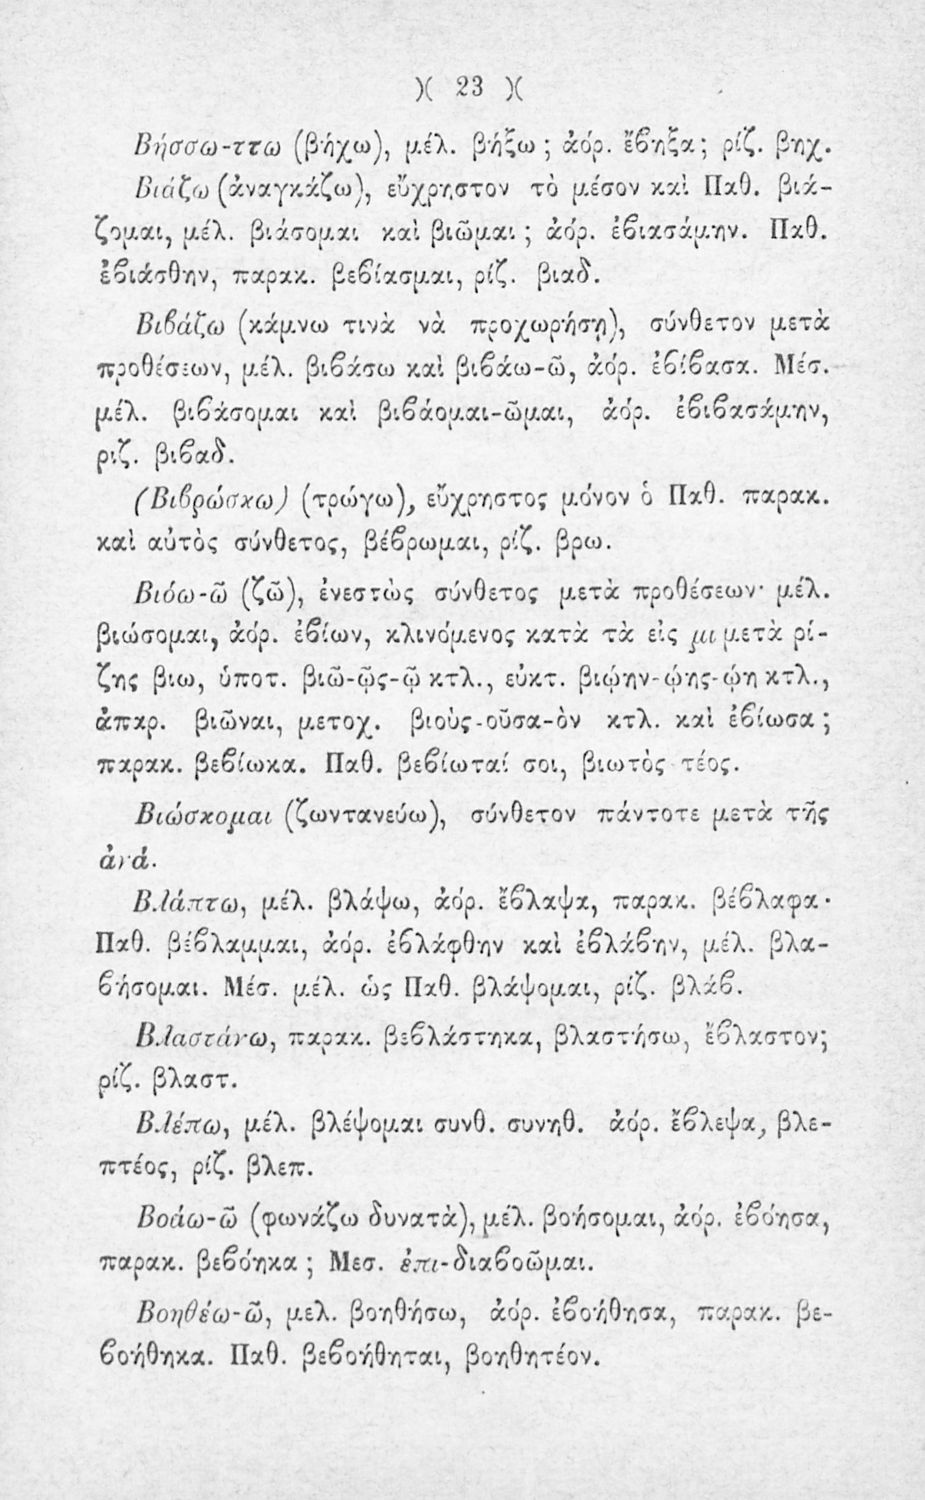 )( 23 )(
Βήσσω-ττω (βήχω), μέλ. βήξω ; ἀόρ. ἔϐηξα; ρίζ. βηχ.
Βιάζω (ἀναγκάζω), εὔχρηστον τὸ μέσον καὶ Παθ. βιά-
ζομαι, μέλ. βιάσομαι καὶ βιῶμαι ; ἀόρ. ἐϐιασάμην. Παθ.
ἐϐιάσθην, παρακ. βεϐίασμαι, ρίζ. βιαδ.
Βιϐάζω (κάμνω τινὰ νὰ προχωρήσῃ), σύνθετον μετὰ
προθέσεων, μέλ. βιϐάσω καὶ βιϐάω-ῶ, ἀόρ. ἐϐίϐασα. Μέσ.
μέλ. βιϐάσομαι καὶ βιϐάομαι-ῶμαι, ἀόρ. ἐϐιϐασάμην,
ριζ. βιϐαδ.
(Βιϐρώσκω) (τρώγω), εὔχρηστος μόνον ὁ Παθ. παρακ.
καὶ αὐτὸς σύνθετος, βέϐρωμαι, ρίζ. βρω.
Βιόω-ῶ (ζῶ), ἐνεστὼς σύνθετος μετὰ προθέσεων· μέλ.
βιώσομαι, ἀόρ. ἐϐίων, κλινόμενος κατὰ τὰ εἰς μι μετὰ ρί-
ζης βιω, ὑποτ. βιῶ-ῷς-ῷ κτλ., εὐκτ. βιῴην-ῴης-ῴη κτλ.,
ἀπαρ. βιῶναι, μετοχ. βιοὺς-οῦσα-ὸν κτλ. καὶ ἐϐίωσα ;
παρακ. βεϐίωκα. Παθ. βεϐίωταί σοι, βιωτὸς τέος.
Βιώσκομαι (ζωντανεύω), σύνθετον πάντοτε μετὰ τῆς
ἀνά.
Βλάπτω, μέλ. βλάψω, ἀόρ. ἔϐλαψα, παρακ. βέϐλαφα·
Παθ. βέϐλαμμαι, ἀόρ. ἐϐλάφθην καὶ ἐϐλάϐην, μέλ. βλα-
ϐήσομαι. Μέσ. μέλ. ὡς Παθ. βλάψομαι, ρίζ. βλάϐ.
Βλαστάνω, παρακ. βεϐλάστηκα, βλαστήσω, ἔϐλαστον;
ρίζ. βλαστ.
Βλέπω, μέλ. βλέψομαι συνθ. συνηθ. ἀόρ. ἔϐλεψα, βλε-
πτέος, ρίζ. βλεπ.
Βοάω-ῶ (φωνάζω δυνατὰ), μέλ. βοήσομαι, ἀόρ. ἐϐόησα,
παρακ. βεϐόηκα ; Μεσ. ἐπι-διαϐοῶμαι.
Βοηθέω-ῶ, μελ. βοηθήσω, ἀόρ. ἐϐοήθησα, παρακ. βε-
ϐοήθηκα. Παθ. βεϐοήθηται, βοηθητέον.